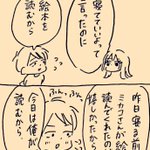 昨日寝る前
ミカコさんが絵本
読んでくれたのに
寝てていいよって
言ったのに
絵本を
読むから
悔しかったから
今日は俺が
読むから
ふん、ふん、